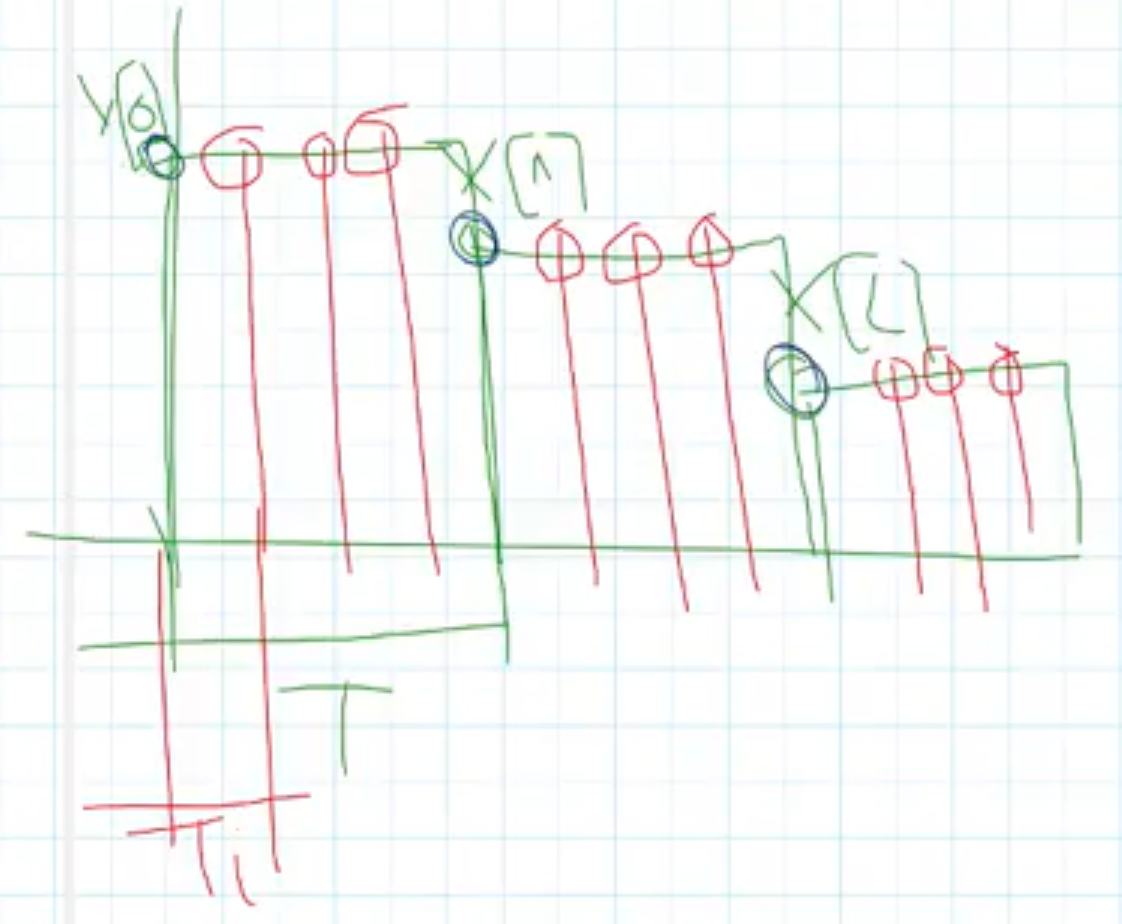 X[0]
X[1]
X[2]
T
Ti